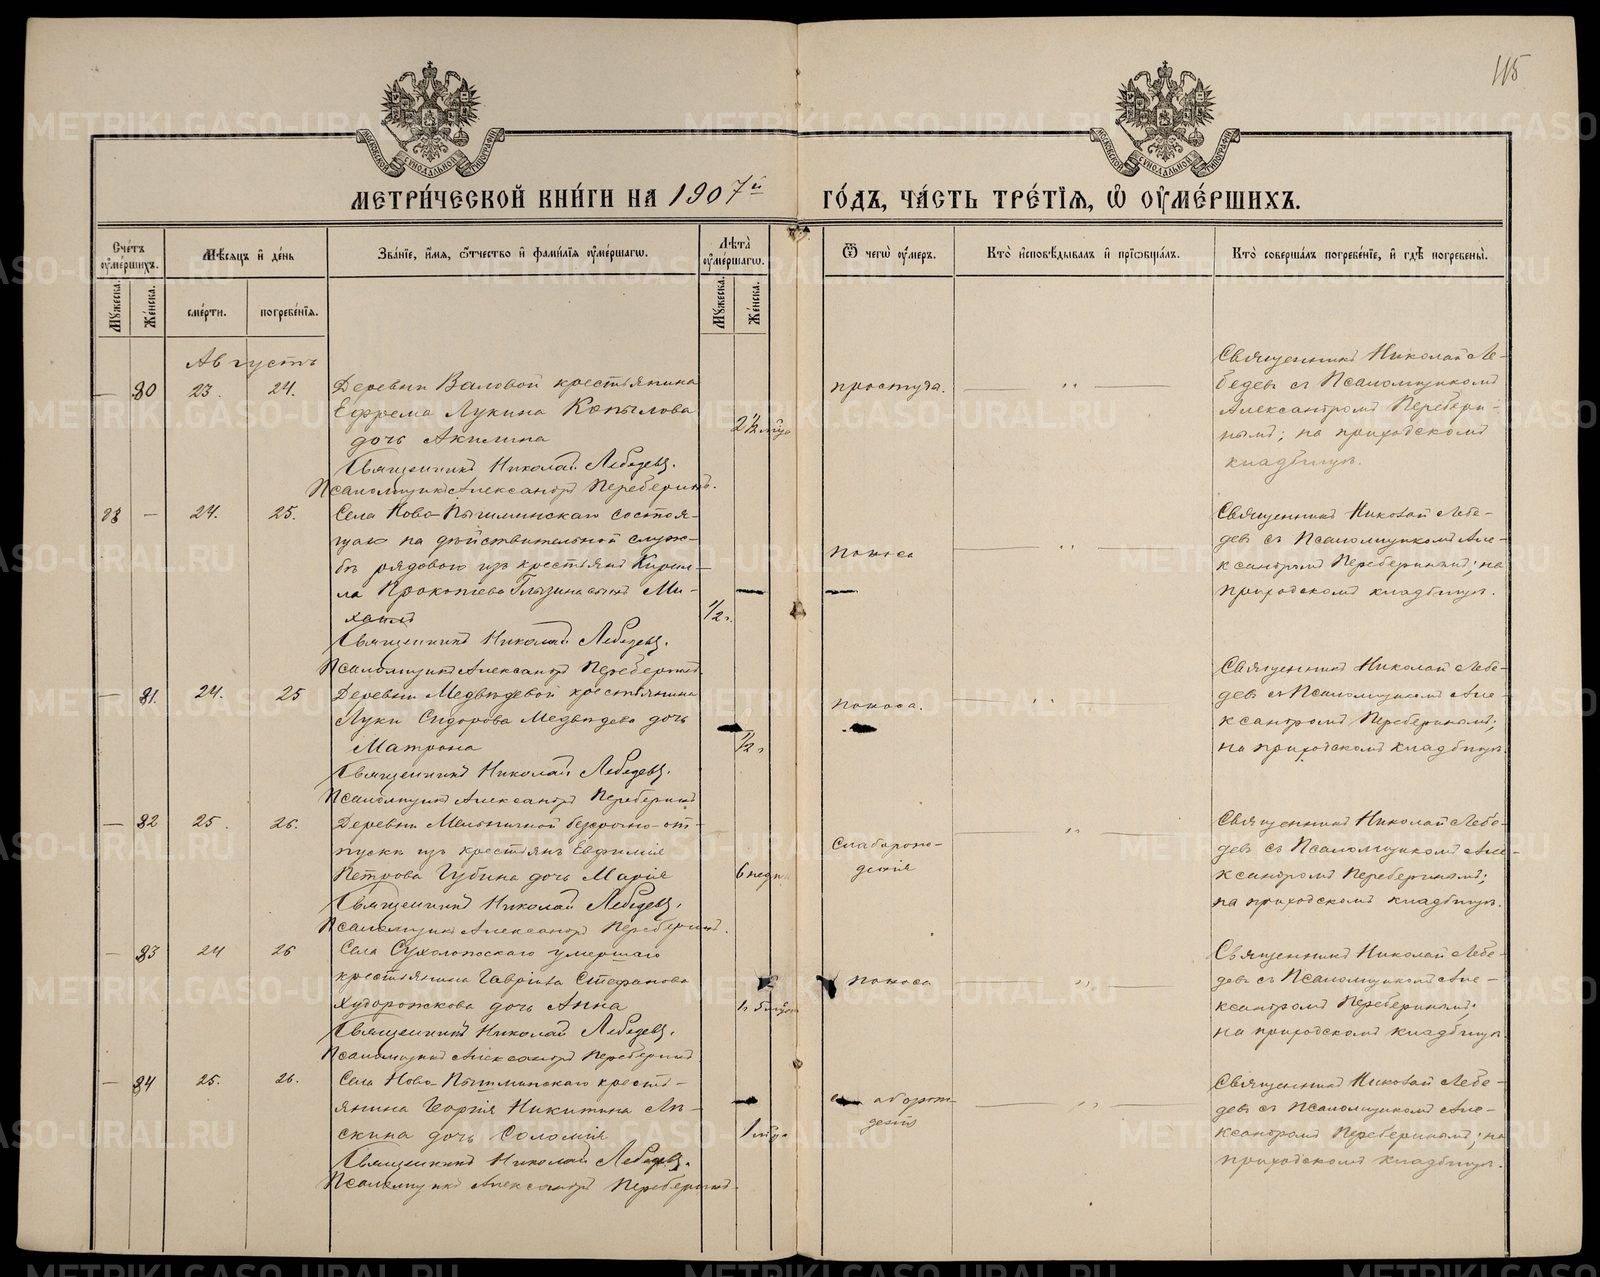 115
МОСКОВСКОЙ СѴНОДАЛЬНОЙ ТИПОГРАФІИ
МОСКОВСКОЙ СѴНОДАЛЬНОЙ ТИПОГРАФІИ
МЕТРИ́ЧЕСКОЙ КНИ́ГИ НА 1907й ГО́ДЪ, ЧА́СТЬ ТРЕ́ТІѦ, Ѡ҆ ОУ҆МЕ́РШИХЪ.
Сче́тъ оу҆ме́ршихъ.
Мѣ́сяцъ и҆ де́нь
Зва́нїе, и҆́мѧ, ѻ҆́тчество и҆ фами́лїѧ оу҆ме́ршагѡ.
Лѣ́та оу҆ме́ршагѡ.
Ѿ чегѡ̀ оу҆́меръ.
Кто̀ и҆сповѣ́дывалъ и҆ прїѡбща́лъ.
Кто̀ соверша́лъ погребе́нїе, и҆ гдѣ̀ погребены̀.
Му́жеска.
Же́нска.
сме́рти.
погребе́нїѧ.
Му́жеска.
Же́нска.
Августъ
— 80 23. 24.
Деревни Валовой крестьянина
Ефрема Лукина Копылова
дочь Акилина
Священникъ Николай Лебедевъ.
Псаломщикъ Александръ Переберинъ.
2½ мѣся
простуда.
— " —
Священникъ Николай Ле-
бедевъ съ Псаломщикомъ
Александромъ Перебери-
нымъ; на приходскомъ
кладбищѣ.
— 24. 25.
Села Ново-Пышминскаго состоя-
щаго на дѣйствительной служ-
бѣ рядового изъ крестьянъ Кирил-
ла Прокопьева Глызина сынъ Ми-
хаилъ
Священникъ Николай Лебедевъ.
Псаломщикъ Александръ Переберинъ.
½ г.
поноса
— " —
Священникъ Николай Лебе-
девъ съ Псаломщикомъ Але-
ксандромъ Переберинымъ; на
приходскомъ кладбищѣ.
— 81. 24. 25
Деревни Медвѣдевой крестьянина
Луки Сидорова Медвѣдева дочь
Матрона
Священникъ Николай Лебедевъ.
Псаломщикъ Александръ Переберинъ
½ г
поноса.
— " —
Священникъ Николай Лебе-
девъ съ Псаломщикомъ Але-
ксандромъ Переберинымъ;
на приходскомъ кладбищѣ.
— 82 25. 26.
Деревни Мельничной безсрочно-от-
пускн изъ крестьянъ Евфимія
Петрова Губина дочь Марія
Священникъ Николай Лебедевъ.
Псаломщикъ Александръ Переберинъ.
6 недѣл
Слаборож-
денія
"
Священникъ Николай Лебе-
девъ съ Псаломщикомъ Але-
ксандромъ Переберинымъ;
на приходскомъ кладбищѣ.
— 83 24 26
Села Сухоложскаго умершаго
крестьянина Гавріила Стефанова
Худорожкова дочь Анна
Священникъ Николай Лебедевъ.
Псаломщикъ Александръ Переберинъ
поноса
— " —
Священникъ Николай Лебе-
девъ съ Псаломщикомъ Але-
ксандромъ Переберинымъ;
на приходскомъ кладбищѣ
— 84 25. 26.
Села Ново-Пышминскаго кресть-
янина Георгія Никитина
дочь Соломія
Священникъ Николай Лебедевъ.
Псаломщикъ Александръ Переберинъ.
1 мѣся
слаборож-
денія
— " —
Священникъ Николай Лебе-
девъ съ Псаломщикомъ Але-
ксандромъ Переберинымъ; на
приходскомъ кладбищѣ.
METRIKI.GASO-URAL.RU